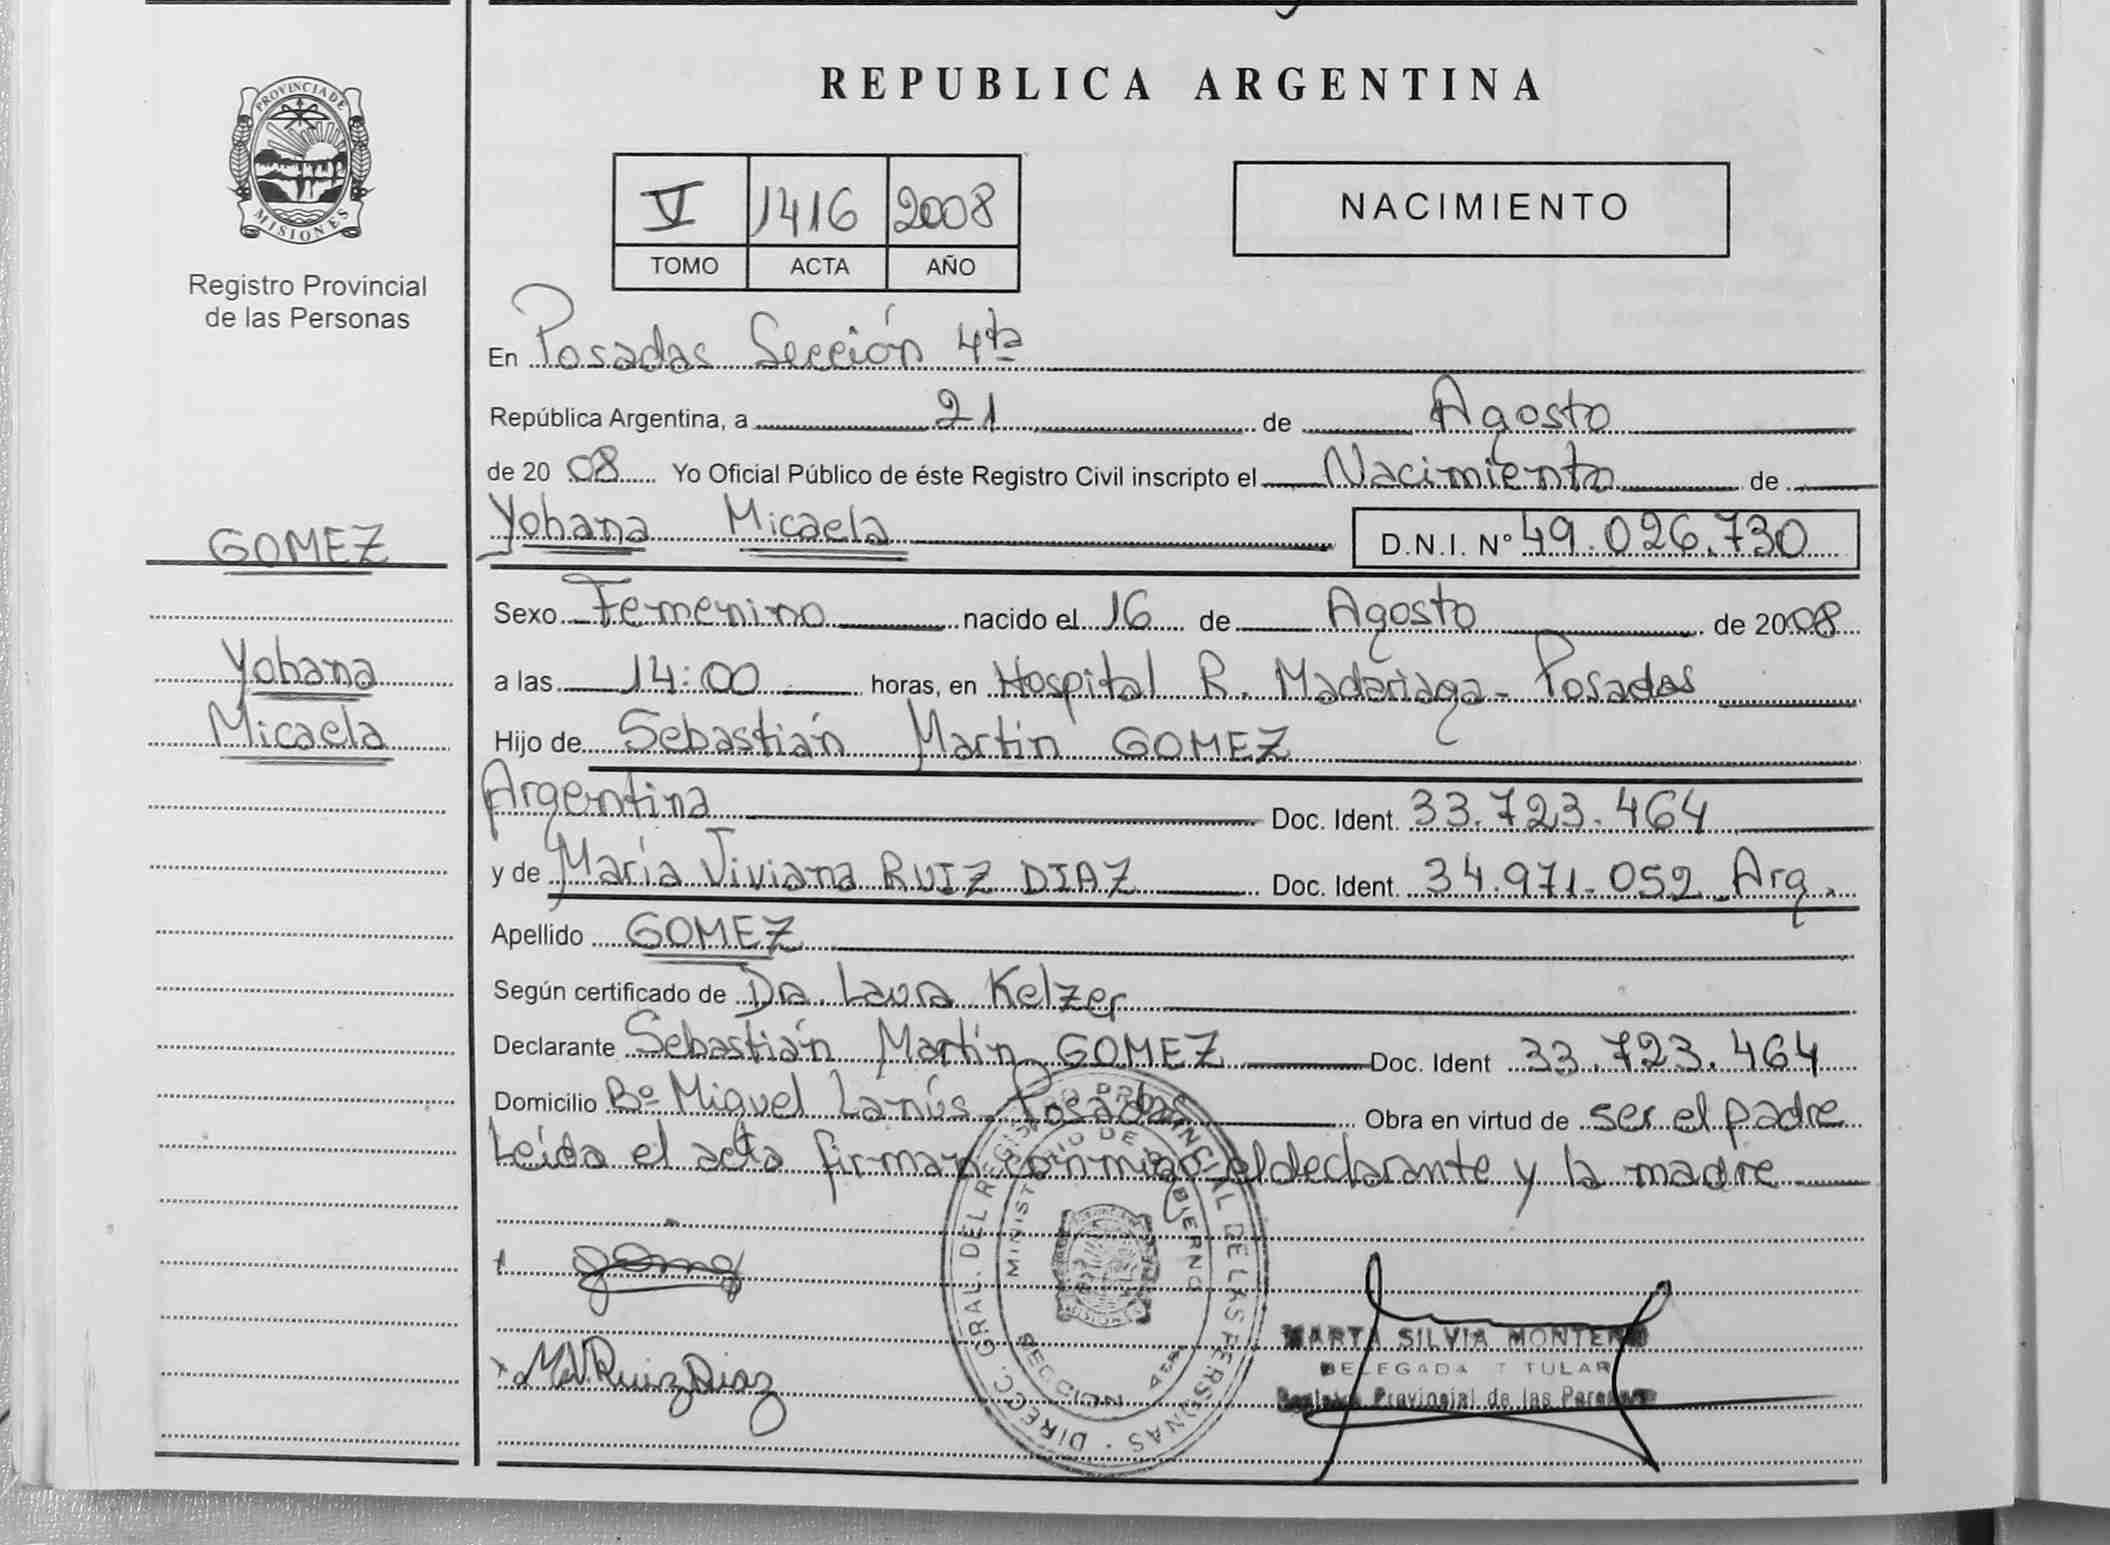 PROVINCIA DE
MISIONES
Registro Provincial
de las Personas
GOMEZ
Yohana
Micaela
REPUBLICA ARGENTINA
V 1416 2008
TOMO ACTA AÑO
NACIMIENTO
En Posadas Sección 4ta
República Argentina, a 21 de Agosto
de 2008 Yo Oficial Público de éste Registro Civil inscripto el Nacimiento de
Yohana Micaela D.N.I. Nº 49.026.730
Sexo Femenino nacido el 16 de Agosto de 2008
a las 14:00 horas, en Hospital R. Madariaga - Posadas
Hijo de Sebastián Martín GOMEZ
Argentina Doc. Ident. 33.723.464
y de María Viviana RUIZ DIAZ Doc. Ident. 34.971.052 Arg.
Apellido GOMEZ
Según certificado de Dra. Laura Kelzer
Declarante Sebastián Martín GOMEZ Doc. Ident 33.723.464
Domicilio Bº Miguel Lanús Posadas Obra en virtud de ser el padre
Leída el acta firman conmigo el declarante y la madre
DIRECC. GRAL. DEL REGISTRO PROVINCIAL DE LAS PERSONAS
MINISTERIO DE GOBIERNO
SECCION 4ta
M.V. Ruiz Diaz
MARTA SILVIA MONTERO
DELEGADA TITULAR
Registro Provincial de las Personas